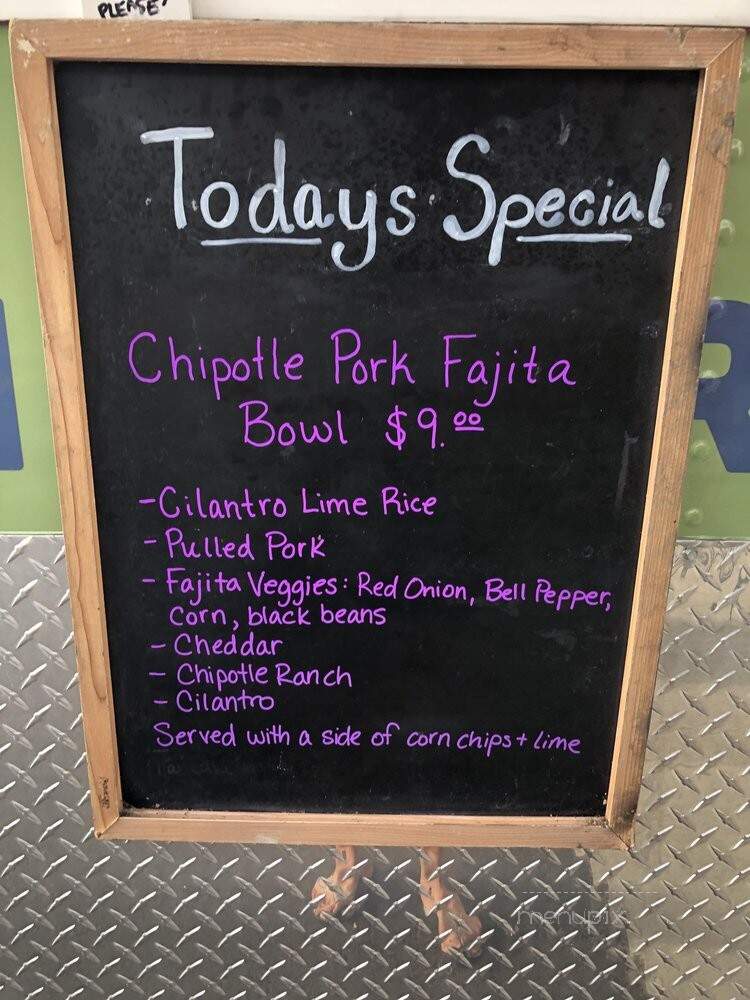 PLEASE!
Todays Special
Chipotle Pork Fajita
Bowl $9.00
- Cilantro Lime Rice
- Pulled Pork
- Fajita Veggies: Red Onion, Bell Pepper,
Corn, black beans
- Cheddar
- Chipotle Ranch
- Cilantro
Served with a side of corn chips + lime
menupix